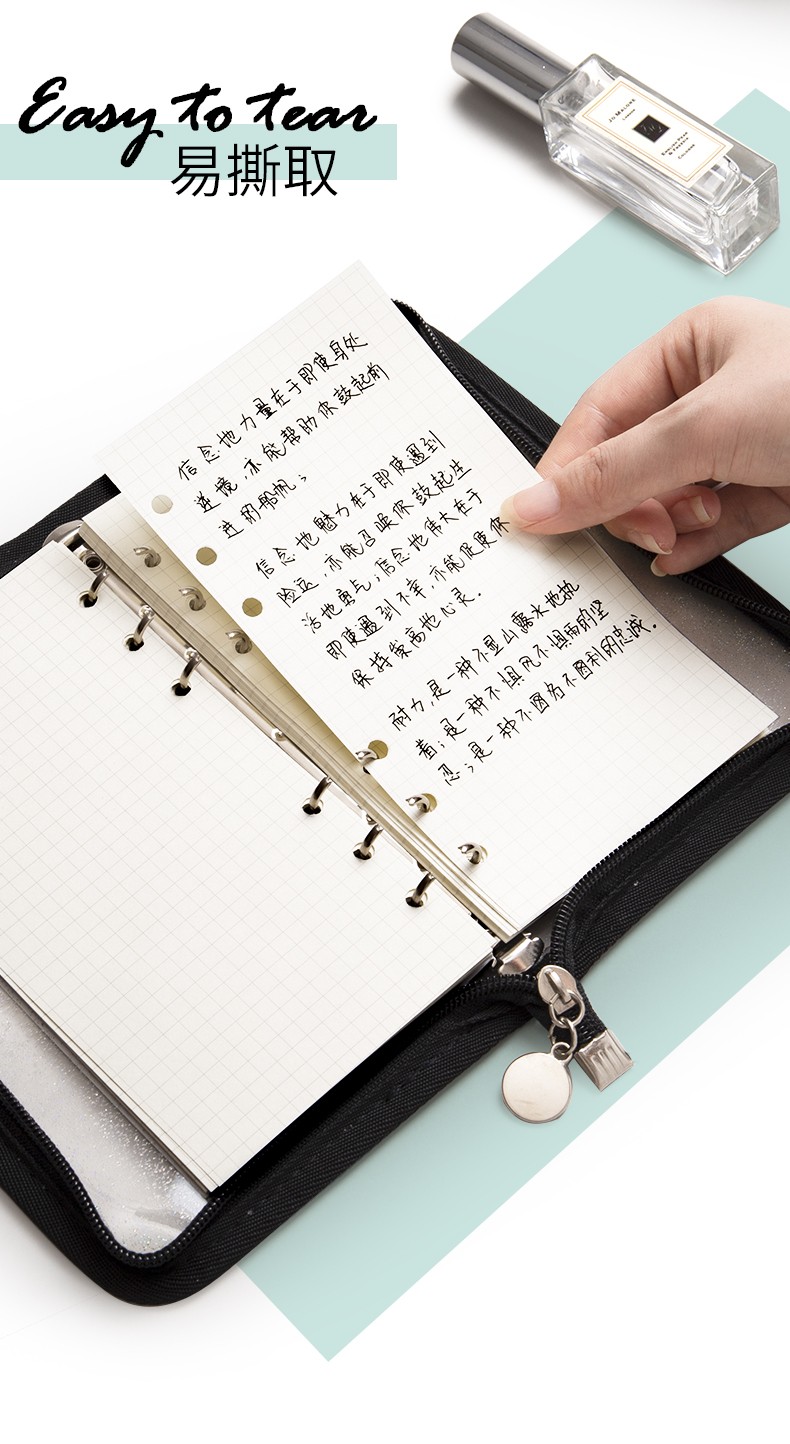 Easy to tear
易撕取
JO MALONE
LONDON
ENGLISH PEAR
& FREESIA
COLOGNE
信念地力量在于即使身处
逆境,亦能帮助你鼓起前
进的船帆;
信念地魅力在于即使遇到
险运,亦能召唤你鼓起生
活地勇气;信念地伟大在于
即使遇到不幸,亦能促使你
保持崇高地心灵.
耐力,是一种不显山露水地执
着;是一种不惧风不惧雨的坚
忍;是一种不图名不图利的忠诚.